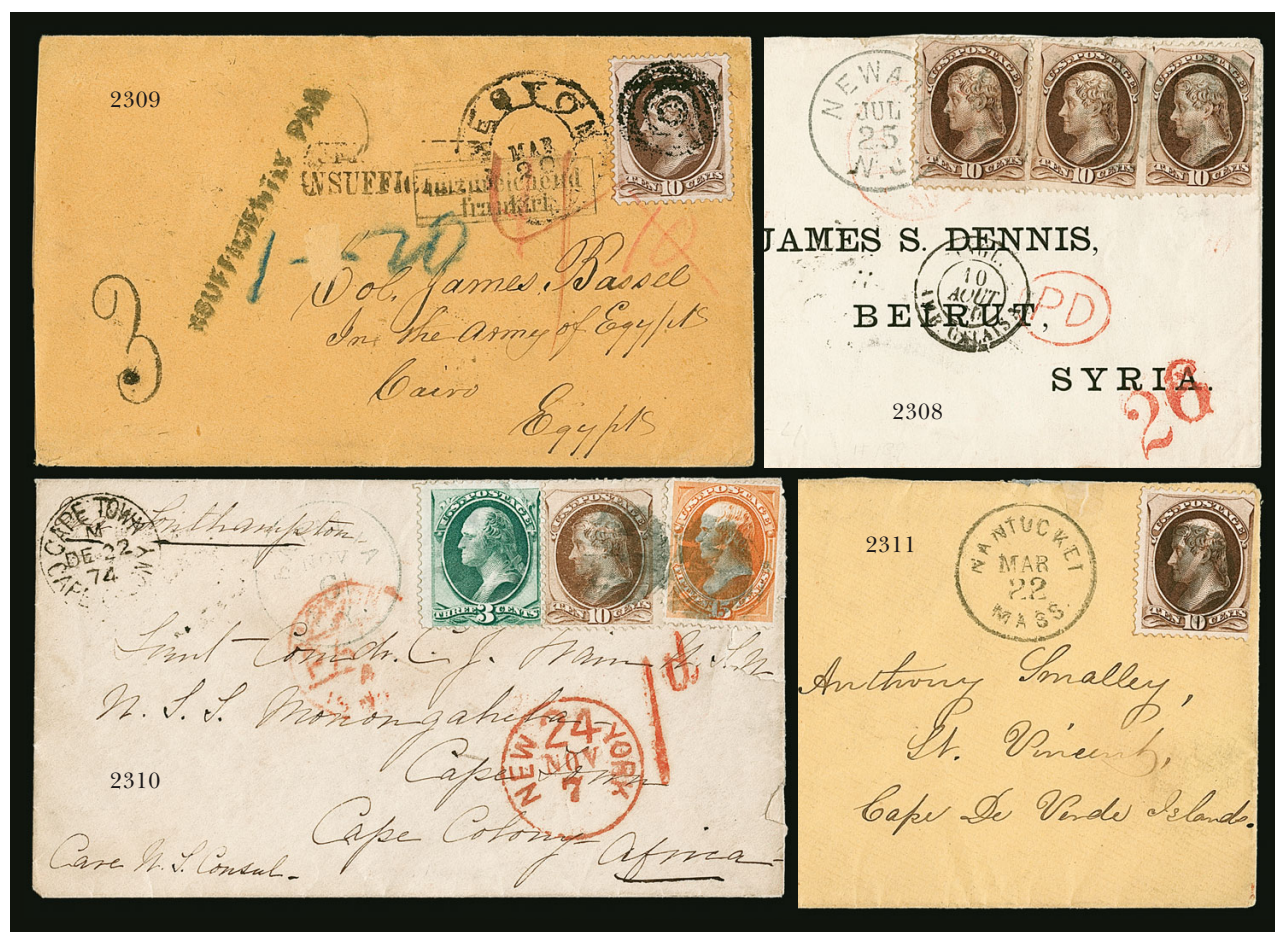 2309
INSUFFICIENTLY PAID
INSUFFI
unzureichend
frankirt.
BOSTON
MAR
U.S. POSTAGE
TEN 10 CENTS
1-20
3
Col. James Bassel
In the Army of Egypt
Cairo
Egypt
NEWARK
JUL
25
N.J.
U.S. POSTAGE
TEN 10 CENTS
U.S. POSTAGE
TEN 10 CENTS
U.S. POSTAGE
TEN 10 CENTS
JAMES S. DENNIS,
10
AOUT
PD
BEIRUT,
SYRIA.
2308
26
CAPE TOWN
M
DE 22
74
CAPE COLONY
Southampton
NOV
U.S. POSTAGE
THREE 3 CENTS
U.S. POSTAGE
TEN 10 CENTS
U.S. POSTAGE
15 CENTS
Lieut Comdr. C. J.
U.S.S. Monongahela
1d
NEW YORK
24
NOV
7
Cape Town
2310
Cape Colony
Africa
Care U.S. Consul.
2311
NANTUCKET
MAR
22
MASS.
U.S. POSTAGE
TEN 10 CENTS
Anthony Smalley,
St. Vincent,
Cape De Verde Islands.